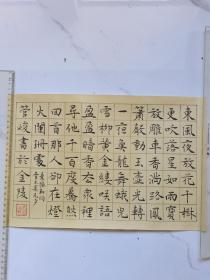 東風夜放花千樹
更吹落星如雨寶
放雕車香滿路鳳
簫馭動玉壺光轉
一夜魚龍舞蛾兒
雪柳黃金縷笑語
盈盈暗香去衆裡
尋他千百度驀然
回首那人却在燈
火闌珊處
管峻書於金陵